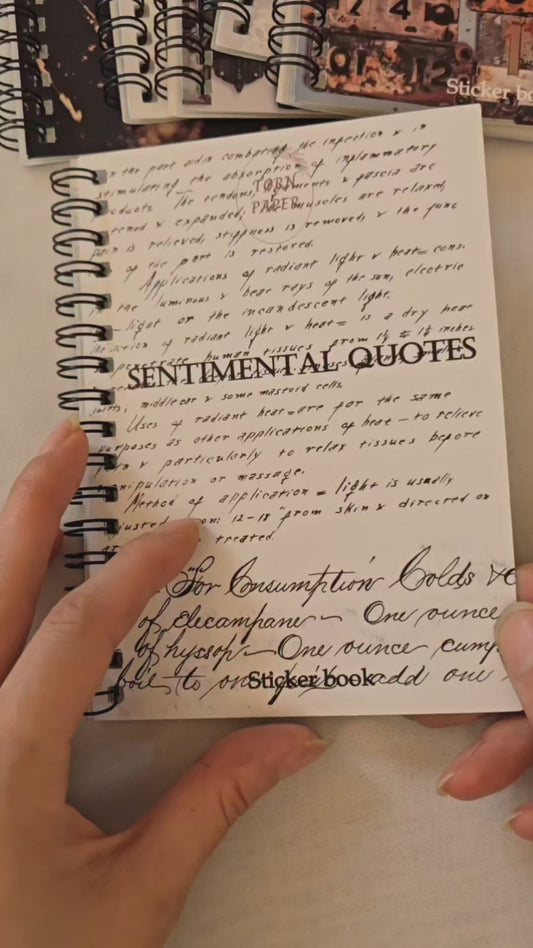 12
Sticker bo
in the part aidin combating the infection & in
stimulating the absorption of inflammatory
TORN
PAPER
products. The tendons, ligaments & fascia are
& expanded, muscles are relaxed,
pain is relieved, stiffness is removed, & the func
of the part is restored.
Applications of radiant light & heat= cons.
in the luminous & heat rays of the sun, electric
light or the incandescent light.
action of radiant light & heat= is a dry heat
human tissues from
SENTIMENTAL QUOTES
middle ear & some mastoid cells.
Uses of radiant heat=are for the same
purposes as other applications of heat — to relieve
pain & particularly to relax tissues before
manipulation or massage.
Method of application = light is usually
12-18" from skin & directed on
treated.
For Consumption Colds
of elecampane — One ounce
of hyssop — One ounce
boil to
Sticker book
add one